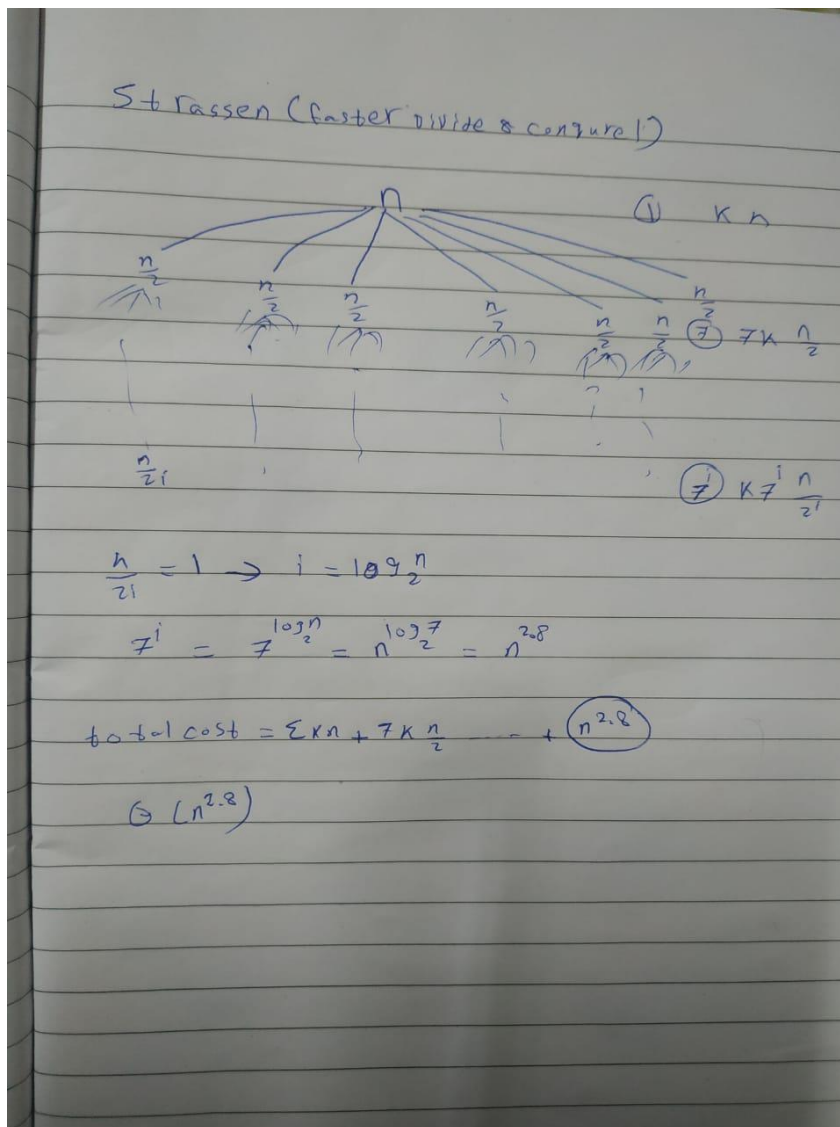 Strassen (faster Divide & conqure 1)
n
① K n
n/2 n/2 n/2 n/2 n/2 n/2 n/2
⑦ 7K n/2
n/2i
7^i K7^i n/2^i
n/2i = 1 → i = log₂n
7^i = 7^log₂n = n^log₂7 = n^2.8
total cost = Σ Kn + 7K n/2 ---- + n^2.8
Θ (n^2.8)